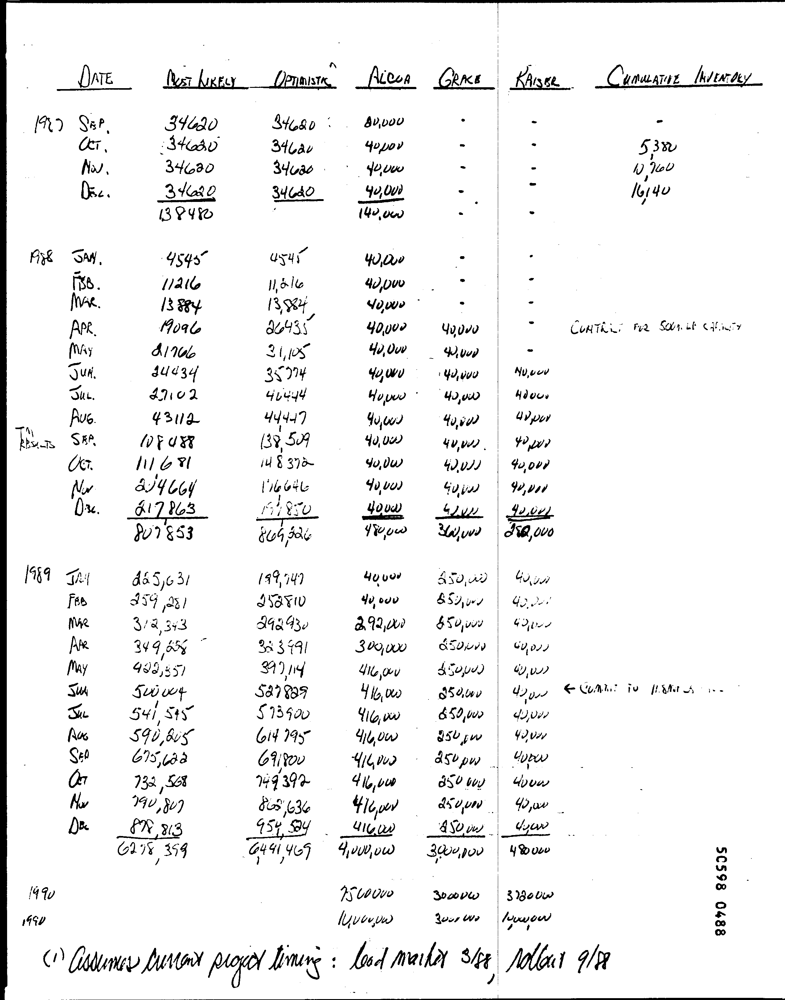 DATE MOST LIKELY OPTIMISTIC ALCOA GRACE KAISER CUMULATIVE INVENTORY
1987 SEP. 34620 34620 - - -
OCT. 34620 34620 40,000 - - 5380
NOV. 34620 34620 40,000 - - 10,760
DEC. 34620 34620 40,000 - - 16,140
138480 140,000 - -
1988 JAN. 4545 4545 40,000 - -
FEB. 11216 11,216 40,000 - -
MAR. 13884 13,884 40,000 - -
APR. 19096 26435 40,000 40,000 - CONTRACT FOR
MAY 21766 31,105 40,000 40,000 -
JUN. 24434 35774 40,000 40,000 40,000
JUL. 27102 40444 40,000 40,000 40000
AUG. 43112 44447 40,000 40,000 40,000
TM
RESULTS SEP. 108488 138,509 40,000 40,000 40,000
OCT. 111681 148372 40,000 40,000 40,000
NOV 204664 176646 40,000 40,000 40,000
DEC. 217863 40,000 40,000 40,000
807853 869,326 480,000 360,000 280,000
1989 JAN 225,631 199,747 40,000 250,000 40,000
FEB 259,281 252810 40,000 250,000 40,000
MAR 312,343 292930 292,000 250,000 40,000
APR 349,658 323991 300,000 250,000 40,000
MAY 422,351 397,114 416,000 250,000 40,000
JUN 500004 527829 416,000 250,000 40,000 ← COMMIT TO
JUL 541,595 573900 416,000 250,000 40,000
AUG 590,205 614795 416,000 250,000 40,000
SEP 675,622 691,800 416,000 250,000 40,000
OCT 732,568 749392 416,000 250000 40000
NOV 790,807 862,636 416,000 250,000 40,000
DEC 878,813 954,524 416,000 250,000 40,000
6278,399 6,491,469 4,000,000 3,000,000 480000
1990 7500000 3000000 3720000
1990 3000000
(1) Assumes current project timing: lead market 3/88, rollout 9/88
50598 0488